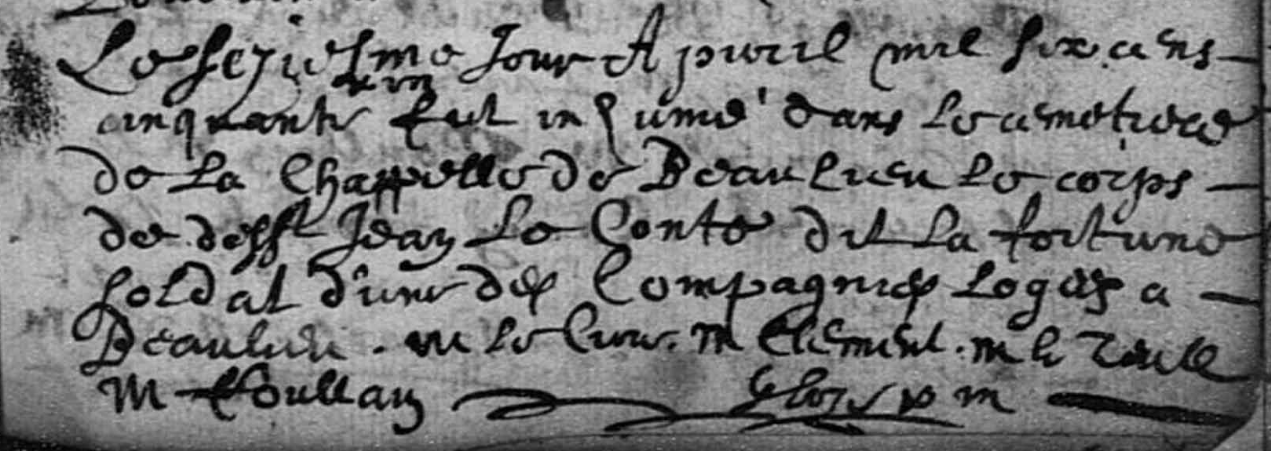 Le seziesme Jour Apvril mil six cens
cinquante fut inhumé dans le cimetiere
de La Chappelle de Beaulieu le corps
de deff^t Jean Le Conte dit La fortune
soldat d'une des Compagnies Logées a
Beaulieu . m le Cure . m Clement . m le
M